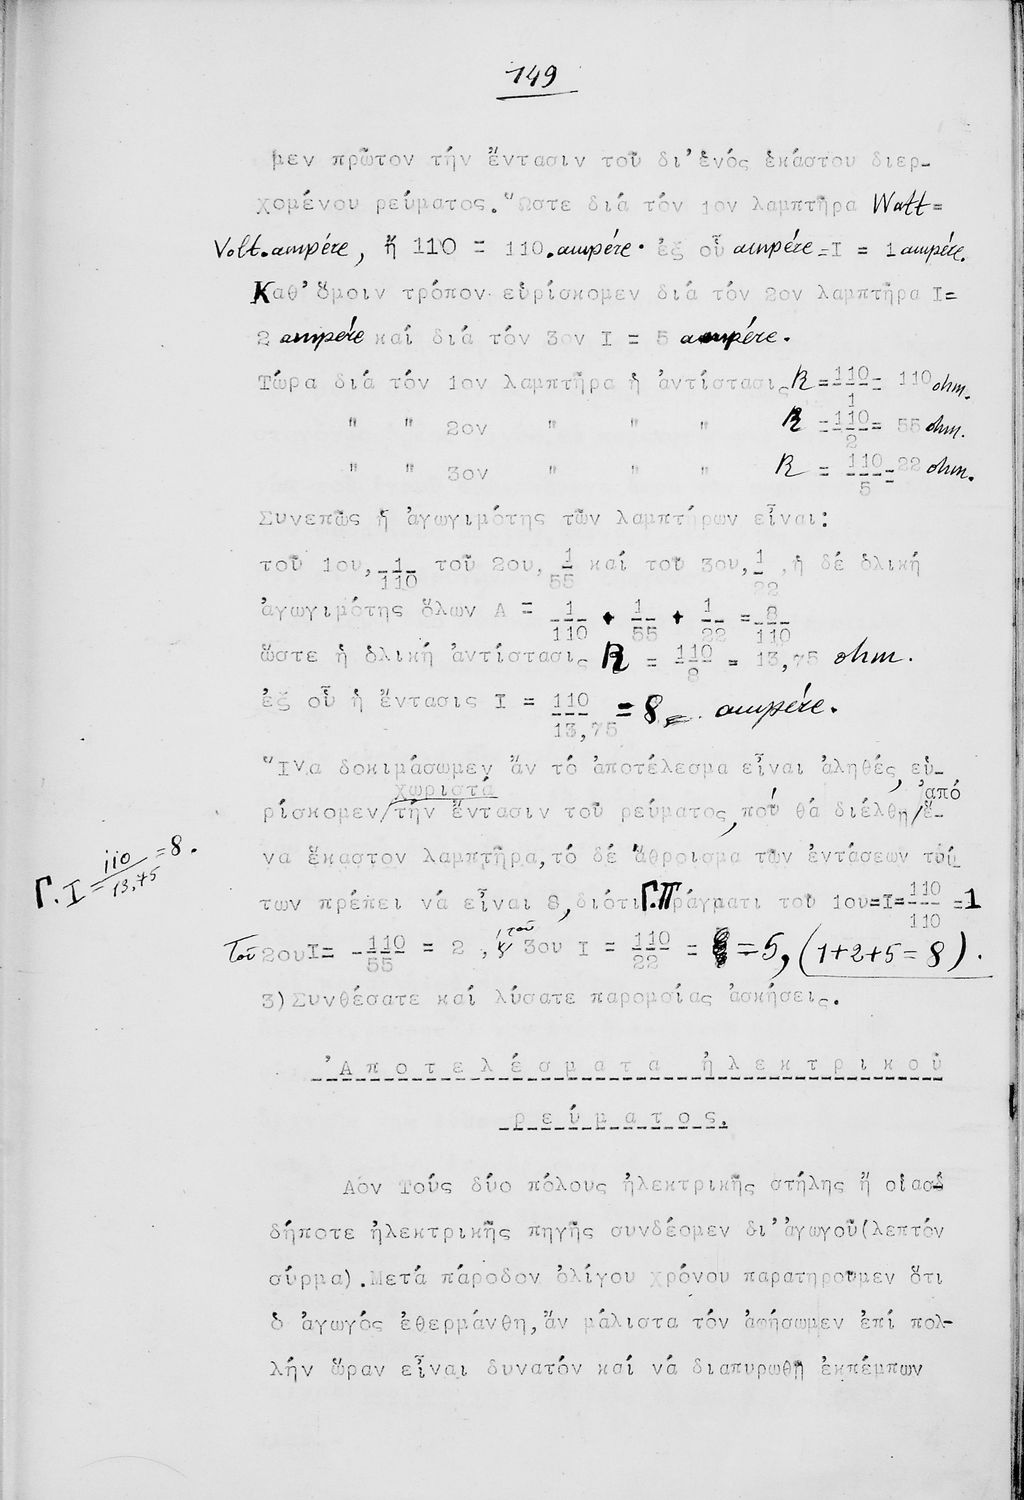 149
μεν πρῶτον τήν ἔντασιν τοῦ δι' ἑνός ἑκάστου διερ-
χομένου ρεύματος. Ὥστε διά τόν 1ον λαμπτῆρα Watt=
Volt.ampére, ἤ 110 = 110.ampére· ἐξ οὗ ampére=I = 1 ampére.
Καθ' ὅμοιν τρόπον εὑρίσκομεν διά τόν 2ον λαμπτῆρα I=
2 ampére καί διά τόν 3ον I = 5 ampére.
Τώρα διά τόν 1ον λαμπτῆρα ἡ ἀντίστασις R = 110/1 = 110 ohm.
" " 2ον " " " R = 110/2 = 55 ohm.
" " 3ον " " " R = 110/5 = 22 ohm.
Συνεπῶς ἡ ἀγωγιμότης τῶν λαμπτήρων εἶναι:
τοῦ 1ου, 1/110 τοῦ 2ου, 1/55 καί του 3ου, 1/22, ἡ δέ ὁλική
ἀγωγιμότης ὅλων A = 1/110 + 1/55 + 1/22 = 8/110
ὥστε ἡ ὁλική ἀντίστασις R = 110/8 = 13,75 ohm.
ἐξ οὗ ἡ ἔντασις I = 110/13,75 = 8 ampére.
Ἵνα δοκιμάσωμεν ἄν τό ἀποτέλεσμα εἶναι ἀληθές, εὑ-
χωριστά ἀπό
ρίσκομεν/τήν ἔντασιν τοῦ ρεύματος, πού θά διέλθη/ἕ-
να ἕκαστον λαμπτῆρα, τό δέ ἄθροισμα τῶν ἐντάσεων τού
Γ. I = 110/13,75 = 8.
των πρέπει νά εἶναι 8, διότι Γ.Πράγματι τοῦ 1ου=I=110/110 =1
Τοῦ 2ου I= 110/55 = 2, τοῦ 3ου I = 110/22 = =5, (1+2+5=8).
3) Συνθέσατε καί λύσατε παρομοίας ἀσκήσεις.
Ἀποτελέσματα ἠλεκτρικοῦ
ρεύματος.
Αον Τούς δύο πόλους ἠλεκτρικῆς στήλης ἤ οἱασ
δήποτε ἠλεκτρικῆς πηγῆς συνδέομεν δι' ἀγωγοῦ (λεπτόν
σύρμα). Μετά πάροδον ὀλίγου χρόνου παρατηρουμεν ὅτι
ὁ ἀγωγός ἐθερμάνθη, ἄν μάλιστα τόν ἀφήσωμεν ἐπί πολ-
λήν ὥραν εἶναι δυνατόν καί νά διαπυρωθῆ ἐκπέμπων